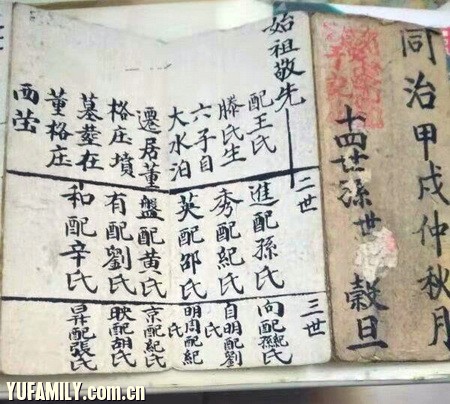 同治甲戌仲秋月
十四世孫世 榖旦
始祖敬先
配王氏
滕氏生
六子自
大水泊
遷居董
格庄墳
墓塋在
董格庄
西茔
二世
進配孫氏
秀配紀氏
英配邵氏
盤配黄氏
有配劉氏
和配辛氏
三世
向配孫氏
自明配劉氏
明周配紀氏
京配紀氏
映配胡氏
昇配張氏
YUFAMILY.com.cn